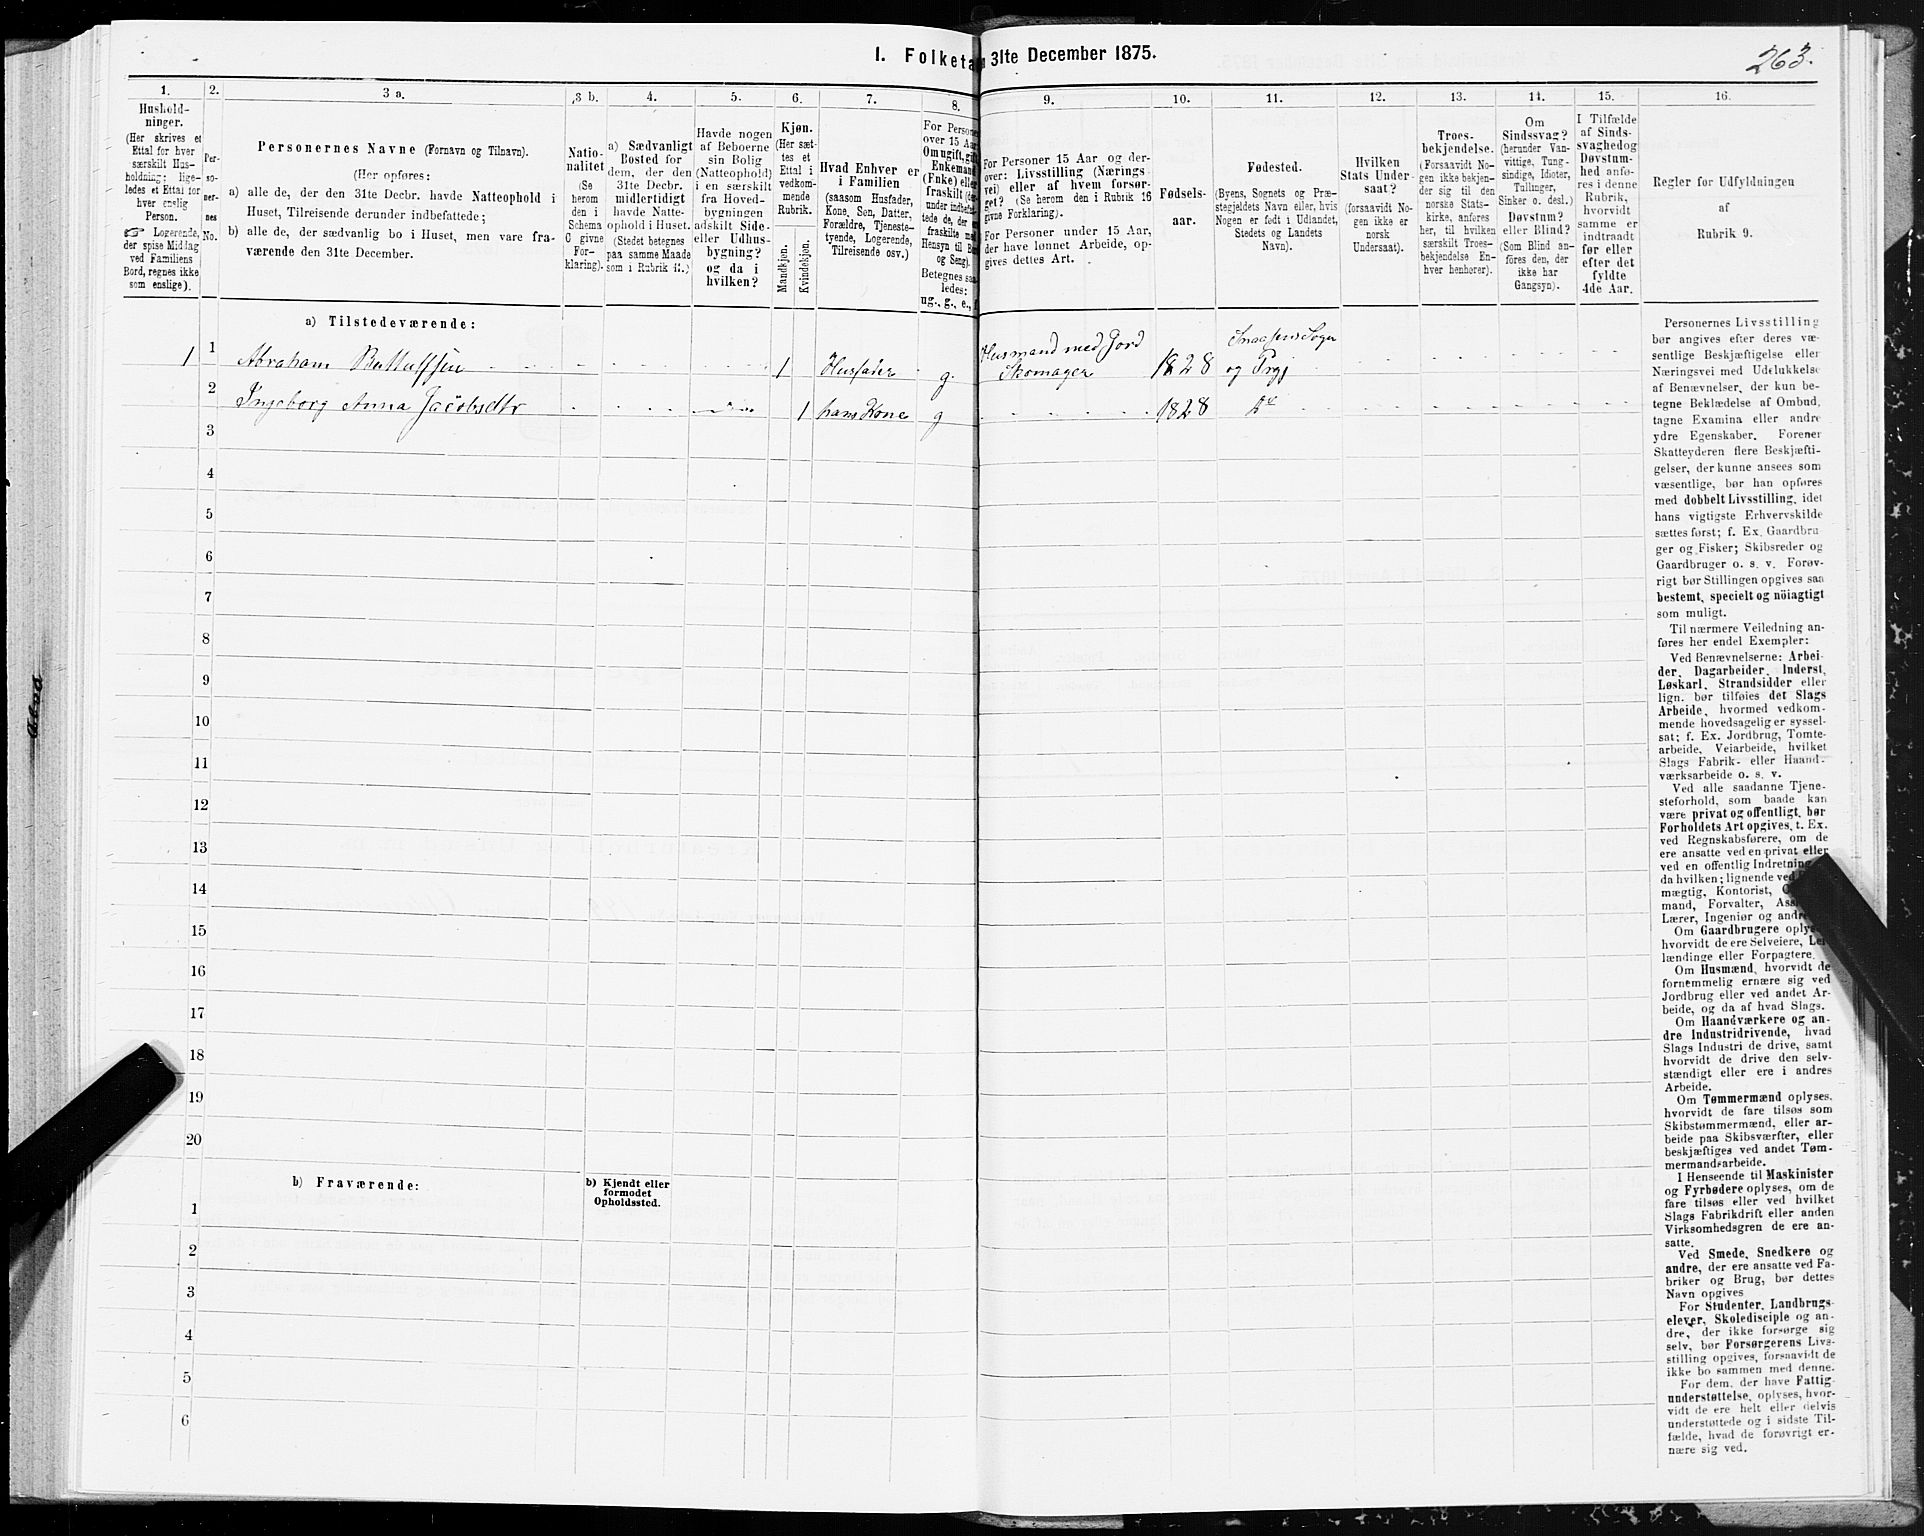 I. Folketa
31te December 1875.
263.
1.
Hushold-
ninger.
(Her skrives et
Ettal for hver
særskilt Hus-
holdning; lige-
ledes et Ettal for
hver enslig
Person.
Logerende,
der spise Middag
ved Familiens
Bord, regnes ikke
som enslige).
2.
Per-
so-
ner-
nes
No.
3 a.
Personernes Navne (Fornavn og Tilnavn).
(Her opføres:
a) alle de, der den 31te Decbr. havde Natteophold i
Huset, Tilreisende derunder indbefattede;
b) alle de, der sædvanlig bo i Huset, men vare fra-
værende den 31te December.
3 b.
Natio-
nalitet
(Se
herom
den i
Schema
C givne
For-
klaring).
4.
a) Sædvanligt
Bosted for
dem, der den
31te Decbr.
midlertidigt
havde Natte-
ophold i Huset.
(Stedet betegnes
paa samme Maade
som i Rubrik 11.)
5.
Havde nogen
af Beboerne
sin Bolig
(Natteophold)
i en særskilt
fra Hoved-
bygningen
adskilt Side-
eller Udhus-
bygning?
og da i
hvilken?
6.
Kjøn.
(Her sæt-
tes et
Ettal i
vedkom-
mende
Rubrik.
Mandkjøn.
Kvindekjøn.
7.
Hvad Enhver er
i Familien
(saasom Husfader,
Kone, Søn, Datter,
Forældre, Tjeneste-
tyende, Logerende,
Tilreisende osv.)
8.
For Persone
over 15 Aar
Om ugift, gift,
Enkemand
(Enke) eller
fraskilt (der-
under indbefat-
tede de, der
fraskilte med
Hensyn til Bo
og Seng).
Betegnes saa-
ledes:
ug., g., e.,
9.
For Personer 15 Aar og der-
over: Livsstilling (Nærings-
vei) eller af hvem forsør-
get? (Se herom den i Rubrik 16
givne Forklaring).
For Personer under 15 Aar,
der have lønnet Arbeide, op-
gives dettes Art.
10.
Fødsels-
aar.
11.
Fødested.
(Byens, Sognets og Præ-
stegjeldets Navn eller, hvis
Nogen er født i Udlandet,
Stedets og Landets
Navn).
12.
Hvilken
Stats Under-
saat?
(forsaavidt No-
gen ikke er
norsk
Undersaat).
13.
Troes-
bekjendelse.
(Forsaavidt No-
gen ikke bekjen-
der sig til den
norske Stats-
kirke, anføres
her, til hvilken
særskilt Troes-
bekjendelse En-
hver henhører).
14.
Om
Sindssvag?
(herunder Van-
vittige, Tung-
sindige, Idioter,
Tullinger,
Sinker o. desl.)
Døvstum?
eller Blind?
(Som Blind an-
føres den, der
ikke har
Gangsyn).
15.
I Tilfælde
af Sinds-
svaghed og
Døvstum-
hed anfø-
res i denne
Rubrik,
hvorvidt
samme er
indtraadt
før eller
efter det
fyldte
4de Aar.
16.
Regler for Udfyldningen
af
Rubrik 9.
a) Tilstedeværende:
1 1 Abraham 1 Husfader g. Husmand med Jord Skomager 1828 Snaasens Sogn og Prgj
2 Ingeborg Anna Jacobsdtr 1 hans Kone g 1828 do
3
4
5
6
7
8
9
10
11
12
13
14
15
16
17
18
19
20
b) Fraværende:
b) Kjendt eller
formodet
Opholdssted.
1
2
3
4
5
6
Personernes Livsstilling
bør angives efter deres væ-
sentlige Beskjæftigelse eller
Næringsvei med Udelukkelse
af Benævnelser, der kun be-
tegne Beklædelse af Ombud,
tagne Examina eller andre
ydre Egenskaber. Forener
Skatteyderen flere Beskjæfti-
gelser, der kunne ansees som
væsentlige, bør han opføres
med dobbelt Livsstilling, idet
hans vigtigste Erhvervskilde
sættes først; f. Ex. Gaardbru-
ger og Fisker; Skibsreder og
Gaardbruger o. s. v. Forøv-
rigt bør Stillingen opgives saa
bestemt, specielt og nöiagtigt
som muligt.
Til nærmere Veiledning an-
føres her endel Exempler:
Ved Benævnelserne: Arbei-
der, Dagarbeider, Inderst,
Løskarl, Strandsidder eller
lign. bør tilføies det Slags
Arbeide, hvormed vedkom-
mende hovedsagelig er syssel-
sat; f. Ex. Jordbrug, Tomte-
arbeide, Veiarbeide, hvilket
Slags Fabrik- eller Haand-
værksarbeide o. s. v.
Ved alle saadanne Tjene-
steforhold, som baade kan
være privat og offentligt, bør
Forholdets Art opgives, t. Ex.
ved Regnskabsførere, om de
ere ansatte ved en privat eller
ved en offentlig Indretning
da hvilken; lignende ved
mægtig, Kontorist,
mand, Forvalter,
Lærer, Ingeniør og andre
Om Gaardbrugere oplys
hvorvidt de ere Selveiere, Lei
lændinge eller Forpagtere.
Om Husmænd, hvorvidt de
fornemmelig ernære sig ved
Jordbrug eller ved andet Ar-
beide, og da af hvad Slags.
Om Haandværkere og an-
dre Industridrivende, hvad
Slags Industri de drive, samt
hvorvidt de drive den selv-
stændigt eller ere i andres
Arbeide.
Om Tømmermænd oplyses,
hvorvidt de fare tilsøs som
Skibstømmermænd, eller ar-
beide paa Skibsværfter, eller
beskjæftiges ved andet Tøm-
mermandsarbeide.
I Henseende til Maskinister
og Fyrbødere oplyses, om de
fare tilsøs eller ved hvilket
Slags Fabrikdrift eller anden
Virksomhedsgren de ere an-
satte.
Ved Smede, Snedkere og
andre, der ere ansatte ved Fa-
briker og Brug, bør dettes
Navn opgives
For Studenter, Landbrugs-
elever, Skoledisciple og an-
dre, der ikke forsørge sig
selv, bør Forsørgerens Livs-
stilling opgives, forsaavidt de
ikke bo sammen med denne.
For dem, der have Fattig-
understøttelse, oplyses, hvor-
vidt de ere helt eller delvis
understøttede og i sidste Til-
fælde, hvad de forøvrigt er-
nære sig ved.